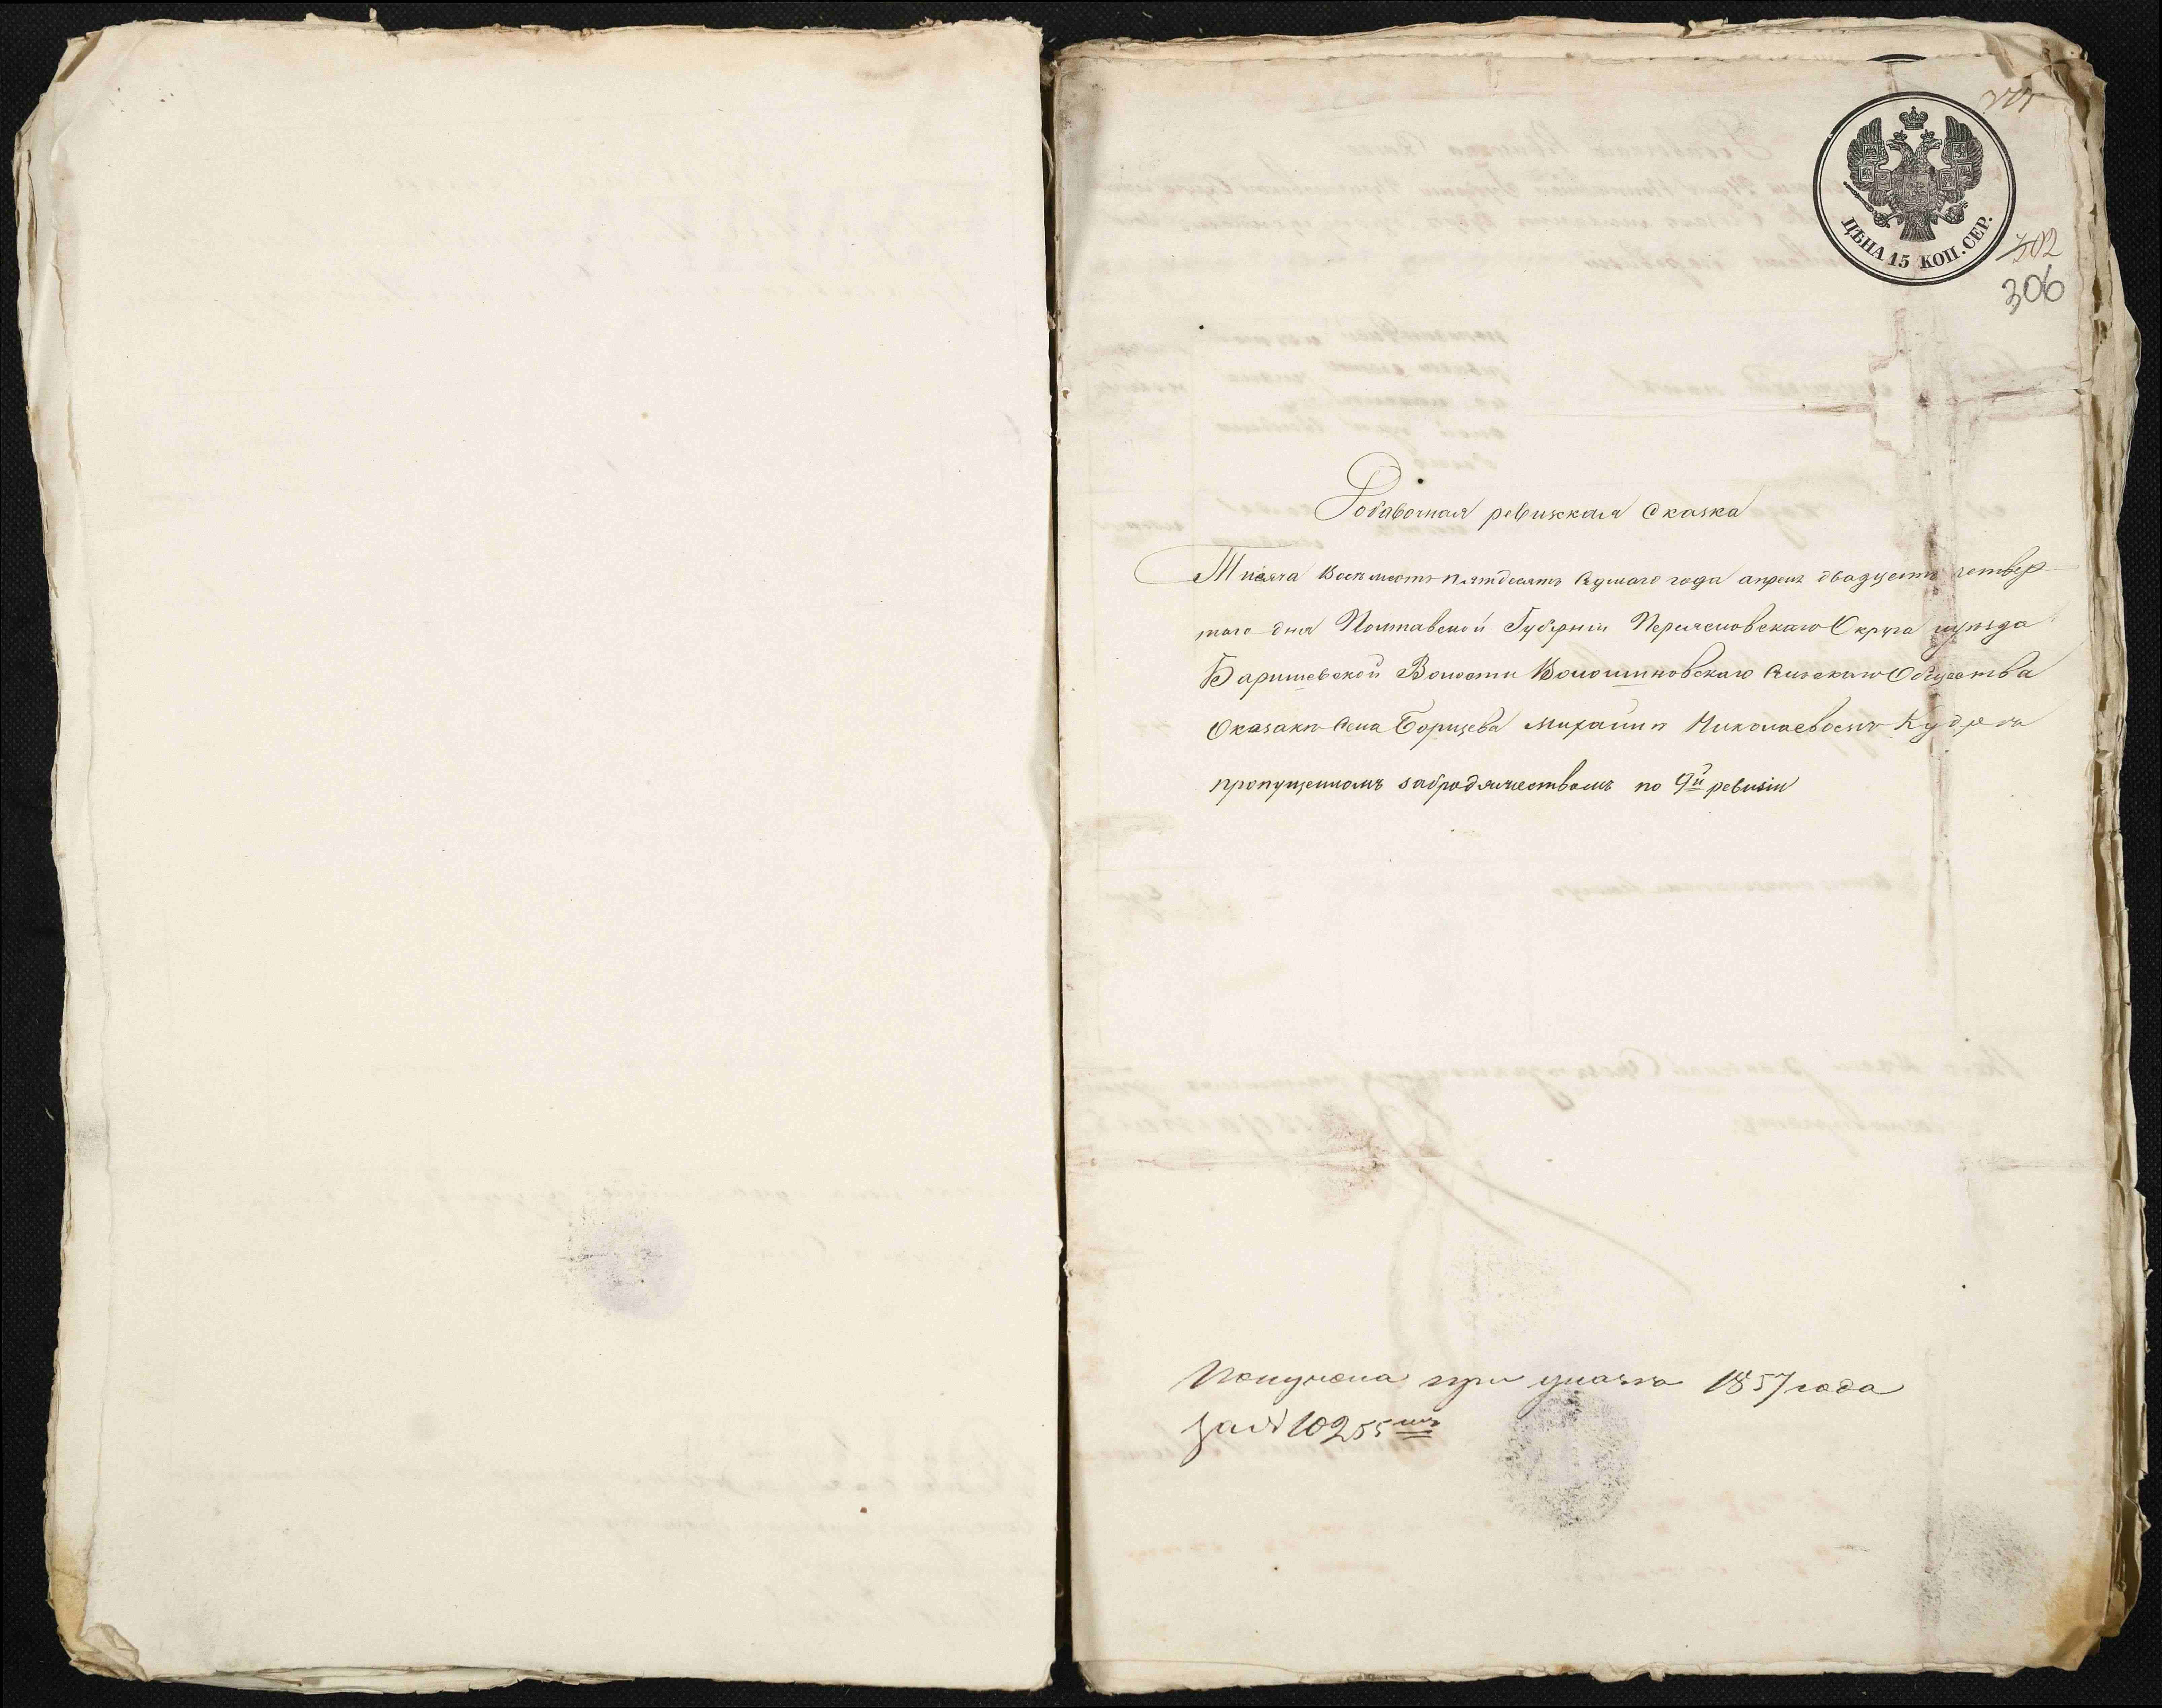 ЦѢНА 15 КОП. СЕР.
302
306
Добавочная ревизская Сказка
Тисяча восемсотъ пятдесятъ седмаго года апреля двадцеть четвер
таго дня Полтавской Губерніи Переясловскаго Округа иуѣзда
Баришевской Волости Волошиновскаго Сельскаго Общества
Оказакѣ Села Борщева Михаили Николаевомъ
пропущенномъ забродяжествомъ по 9й ревизіи
Получена при указѣ 1857 года
за № 10255мъ